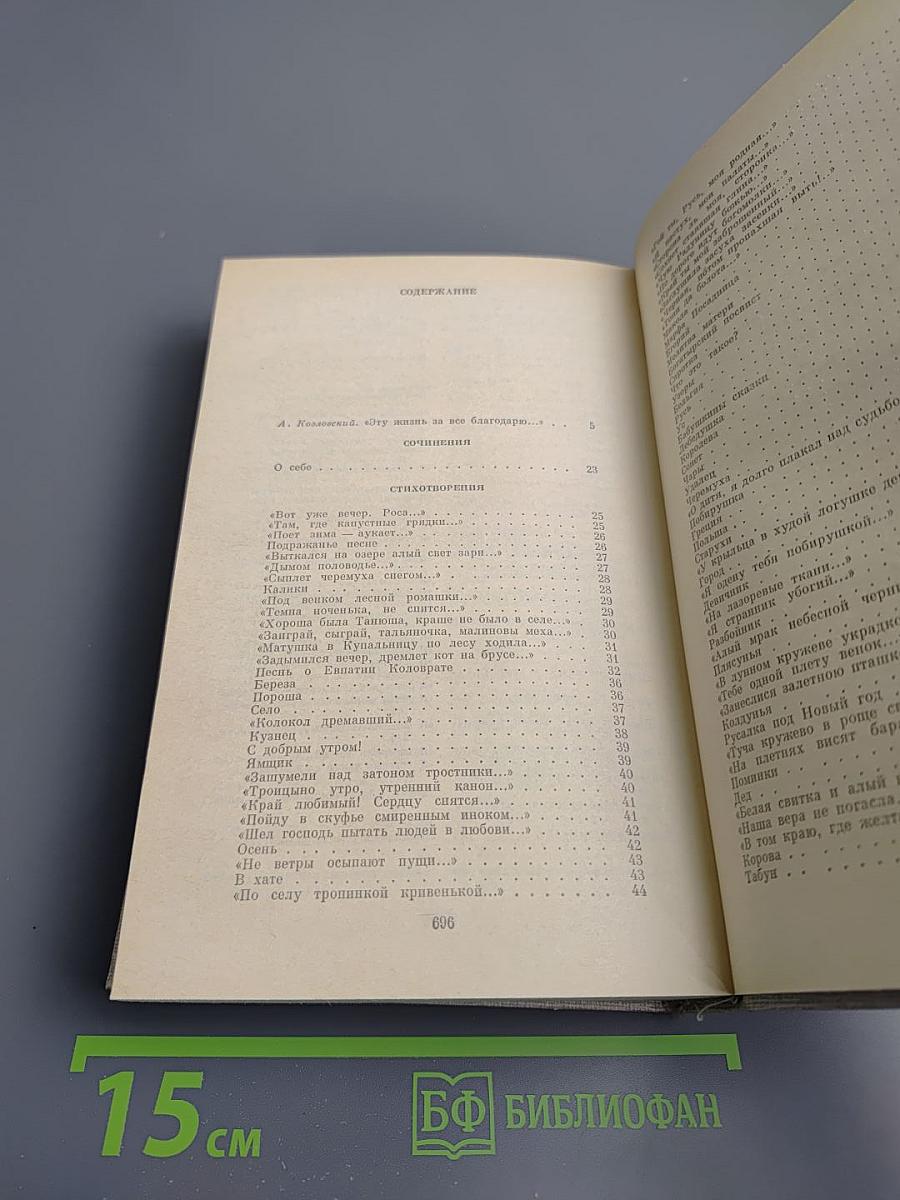 СОДЕРЖАНИЕ
А. Козловский. «Эту жизнь за все благодарю...» . . 5
СОЧИНЕНИЯ
О себе . . . . . . . . . . . . . . . . . . . . 23
СТИХОТВОРЕНИЯ
«Вот уже вечер. Роса...» . . . . . . . . . . 25
«Там, где капустные грядки...» . . . . . . . . 25
«Поет зима — аукает...» . . . . . . . . . . 26
Подражанье песне . . . . . . . . . . . . 26
«Выткался на озере алый свет зари...» . . . . . . 27
«Дымом половодье...» . . . . . . . . . . . 27
«Сыплет черемуха снегом...» . . . . . . . . . 28
Калики . . . . . . . . . . . . . . . . 28
«Под венком лесной ромашки...» . . . . . . . . 29
«Темна ноченька, не спится...» . . . . . . . . 29
«Хороша была Танюша, краше не было в селе...» . . 30
«Заиграй, сыграй, тальяночка, малиновы меха...» . . 30
«Матушка в Купальницу по лесу ходила...» . . . . 31
«Задымился вечер, дремлет кот на брусе...» . . . . 31
Песнь о Евпатии Коловрате . . . . . . . . . 32
Береза . . . . . . . . . . . . . . . . 36
Пороша . . . . . . . . . . . . . . . . 36
Село . . . . . . . . . . . . . . . . . 37
«Колокол дремавший...» . . . . . . . . . . 37
Кузнец . . . . . . . . . . . . . . . . 38
С добрым утром! . . . . . . . . . . . . . 39
Ямщик . . . . . . . . . . . . . . . . 39
«Зашумели над затоном тростники...» . . . . . . 40
«Троицыно утро, утренний канон...» . . . . . . . 40
«Край любимый! Сердцу снятся...» . . . . . . . 41
«Пойду в скуфье смиренным иноком...» . . . . . . 41
«Шел господь пытать людей в любови...» . . . . . 42
Осень . . . . . . . . . . . . . . . . . 42
«Не ветры осыпают пущи...» . . . . . . . . . 43
В хате . . . . . . . . . . . . . . . . 43
«По селу тропинкой кривенькой...» . . . . . . . 44
696
«Гой ты, Русь, моя родная...»
«Я пастух, мои палаты...»
«Сторона ль моя, сторонка...»
«Чую Радуницу божью...»
«По дороге идут богомолки...»
«Край ты мой заброшенный...»
«Заглушила засуха засевки...»
«Черная, потом пропахшая выть!..»
«Топи да болота...»
Марфа Посадница
Егорий
Молитва матери
Богатырский посвист
Сиротка
Что это такое?
Узоры
Бельгия
Русь
Ус
Бабушкины сказки
Лебедушка
Королева
Сонет
Чары
Удалец
Черемуха
«О дитя, я долго плакал над судьбо
Побирушка
Греция
Польша
Старухи
«У крыльца в худой логушке де
Город
«Я одену тебя побирушкой...»
Девичник
«На лазоревые ткани...»
«Я странник убогий...»
Разбойник
«Алый мрак небесной черни
Плясунья
«В лунном кружеве украдко
«Тебе одной плету венок...
«Занеслися залетною пташк
Колдунья
Русалка под Новый год
«Туча кружево в роще св
«На плетнях висят бара
Поминки
Дед
«Белая свитка и алый к
«Наша вера не погасла.
«В том краю, где желт
Корова
Табун
15 см
БФ БИБЛИОФАН